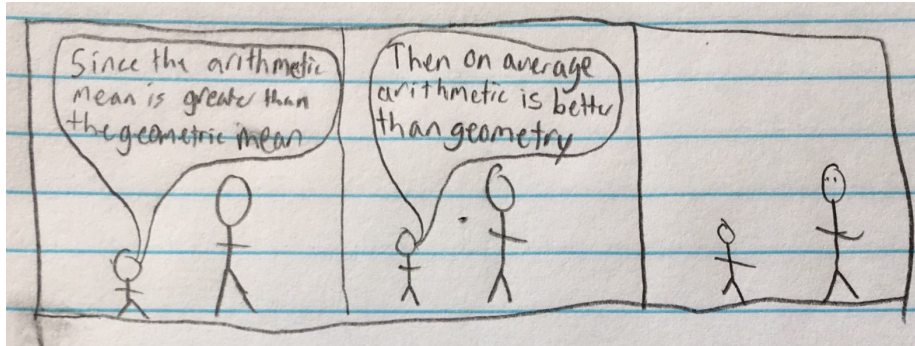 Since the arithmetic
mean is greater than
the geometric mean
Then on average
arithmetic is better
than geometry